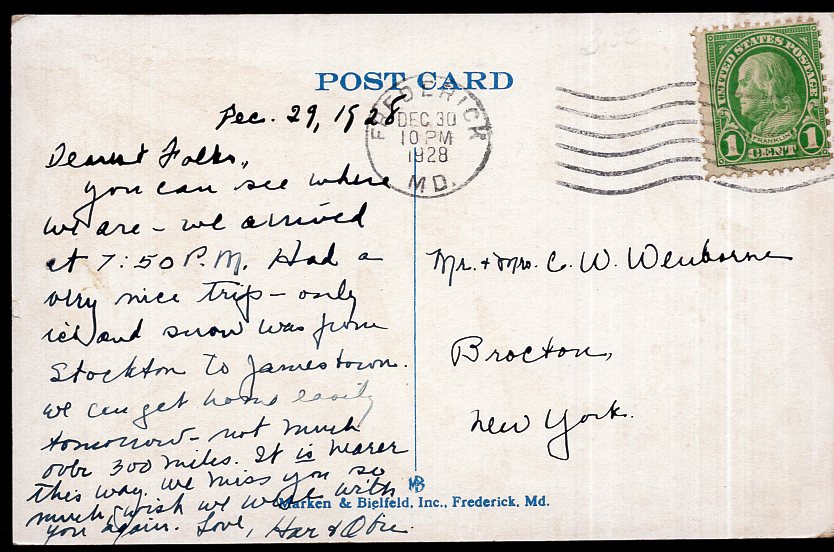 POST CARD
FREDERICK
DEC 30
10 PM
1928
MD.
UNITED STATES POSTAGE
FRANKLIN
1 CENT 1
Dec. 29, 1928
Dearest Folks,
You can see where
we are – we arrived
at 7:50 P.M. Had a
very nice trip – only
ice and snow was from
Stockton to Jamestown.
We can get home easily
tomorrow – not much
over 300 miles. It is nearer
this way. We miss you so
much, wish we were with
you again. Love, Har &
Mr. + Mrs. C. W. Wenborne
Brocton,
New York.
MB
Marken & Bielfeld, Inc., Frederick, Md.